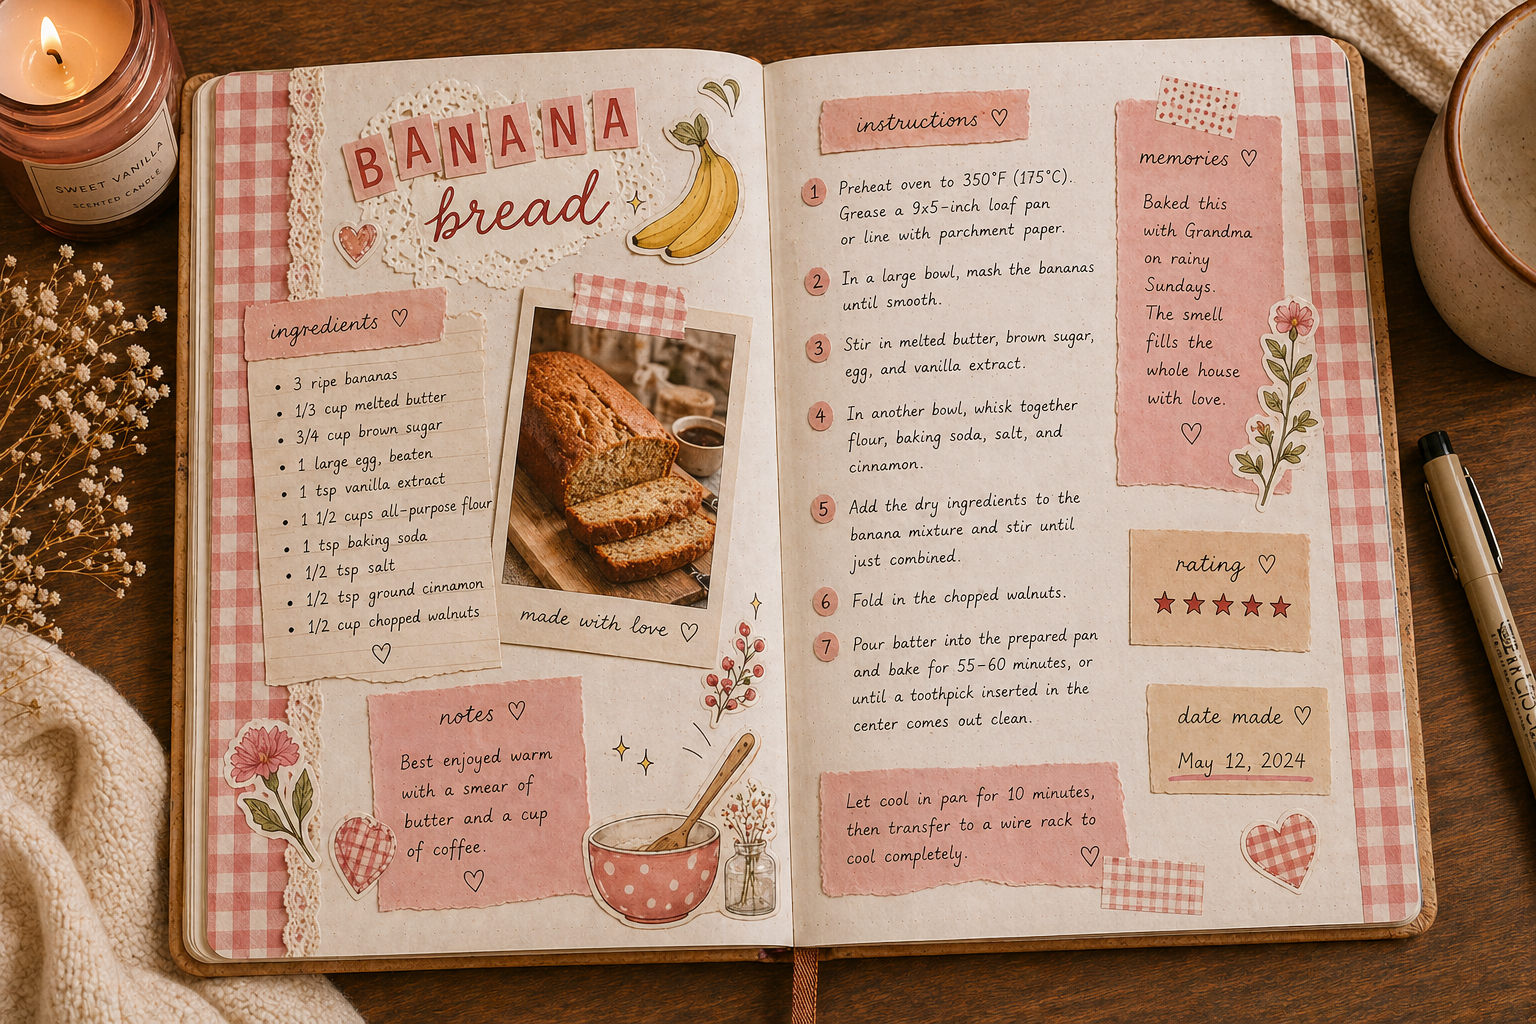 SWEET VANILLA
SCENTED CANDLE
BANANA
bread
ingredients ♡
• 3 ripe bananas
• 1/3 cup melted butter
• 3/4 cup brown sugar
• 1 large egg, beaten
• 1 tsp vanilla extract
• 1 1/2 cups all-purpose flour
• 1 tsp baking soda
• 1/2 tsp salt
• 1/2 tsp ground cinnamon
• 1/2 cup chopped walnuts
made with love ♡
notes ♡
Best enjoyed warm
with a smear of
butter and a cup
of coffee.
instructions ♡
1 Preheat oven to 350°F (175°C).
Grease a 9x5-inch loaf pan
or line with parchment paper.
2 In a large bowl, mash the bananas
until smooth.
3 Stir in melted butter, brown sugar,
egg, and vanilla extract.
4 In another bowl, whisk together
flour, baking soda, salt, and
cinnamon.
5 Add the dry ingredients to the
banana mixture and stir until
just combined.
6 Fold in the chopped walnuts.
7 Pour batter into the prepared pan
and bake for 55-60 minutes, or
until a toothpick inserted in the
center comes out clean.
Let cool in pan for 10 minutes,
then transfer to a wire rack to
cool completely.
memories ♡
Baked this
with Grandma
on rainy
Sundays.
The smell
fills the
whole house
with love.
rating ♡
★★★★★
date made ♡
May 12, 2024